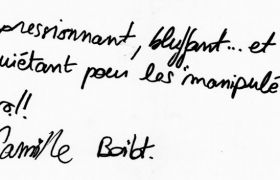 pressionnant, bluffant... et
quiétant pour les "manipulé
rs!!
Camille Boitot.